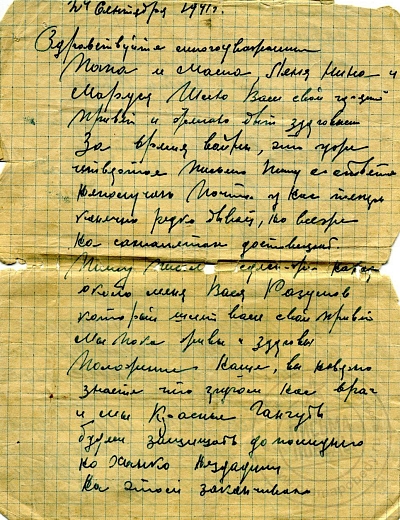 24 Сентября 1941г.
Здравствуйте многоуважаемые
Папа и Мама, Лёня Нина и
Маруся Шлю Вам свой
привет и желаю быть здоровым
За время войны, это уже
четвертое письмо пишу а ответа
неполучаю Почта у нас теперь
конечно редко бывает, но вскоре
на самолетах доставляет.
Пишу письмо
около меня Вася Разумов
который шлет вам свой привет
Мы пока живы и здоровы
Положение наше, вы наверно
знаете что кругом нас враг
и мы Красные Гангутцы
будем защищать до последнего
но Ханко нездадим
На этом заканчиваю